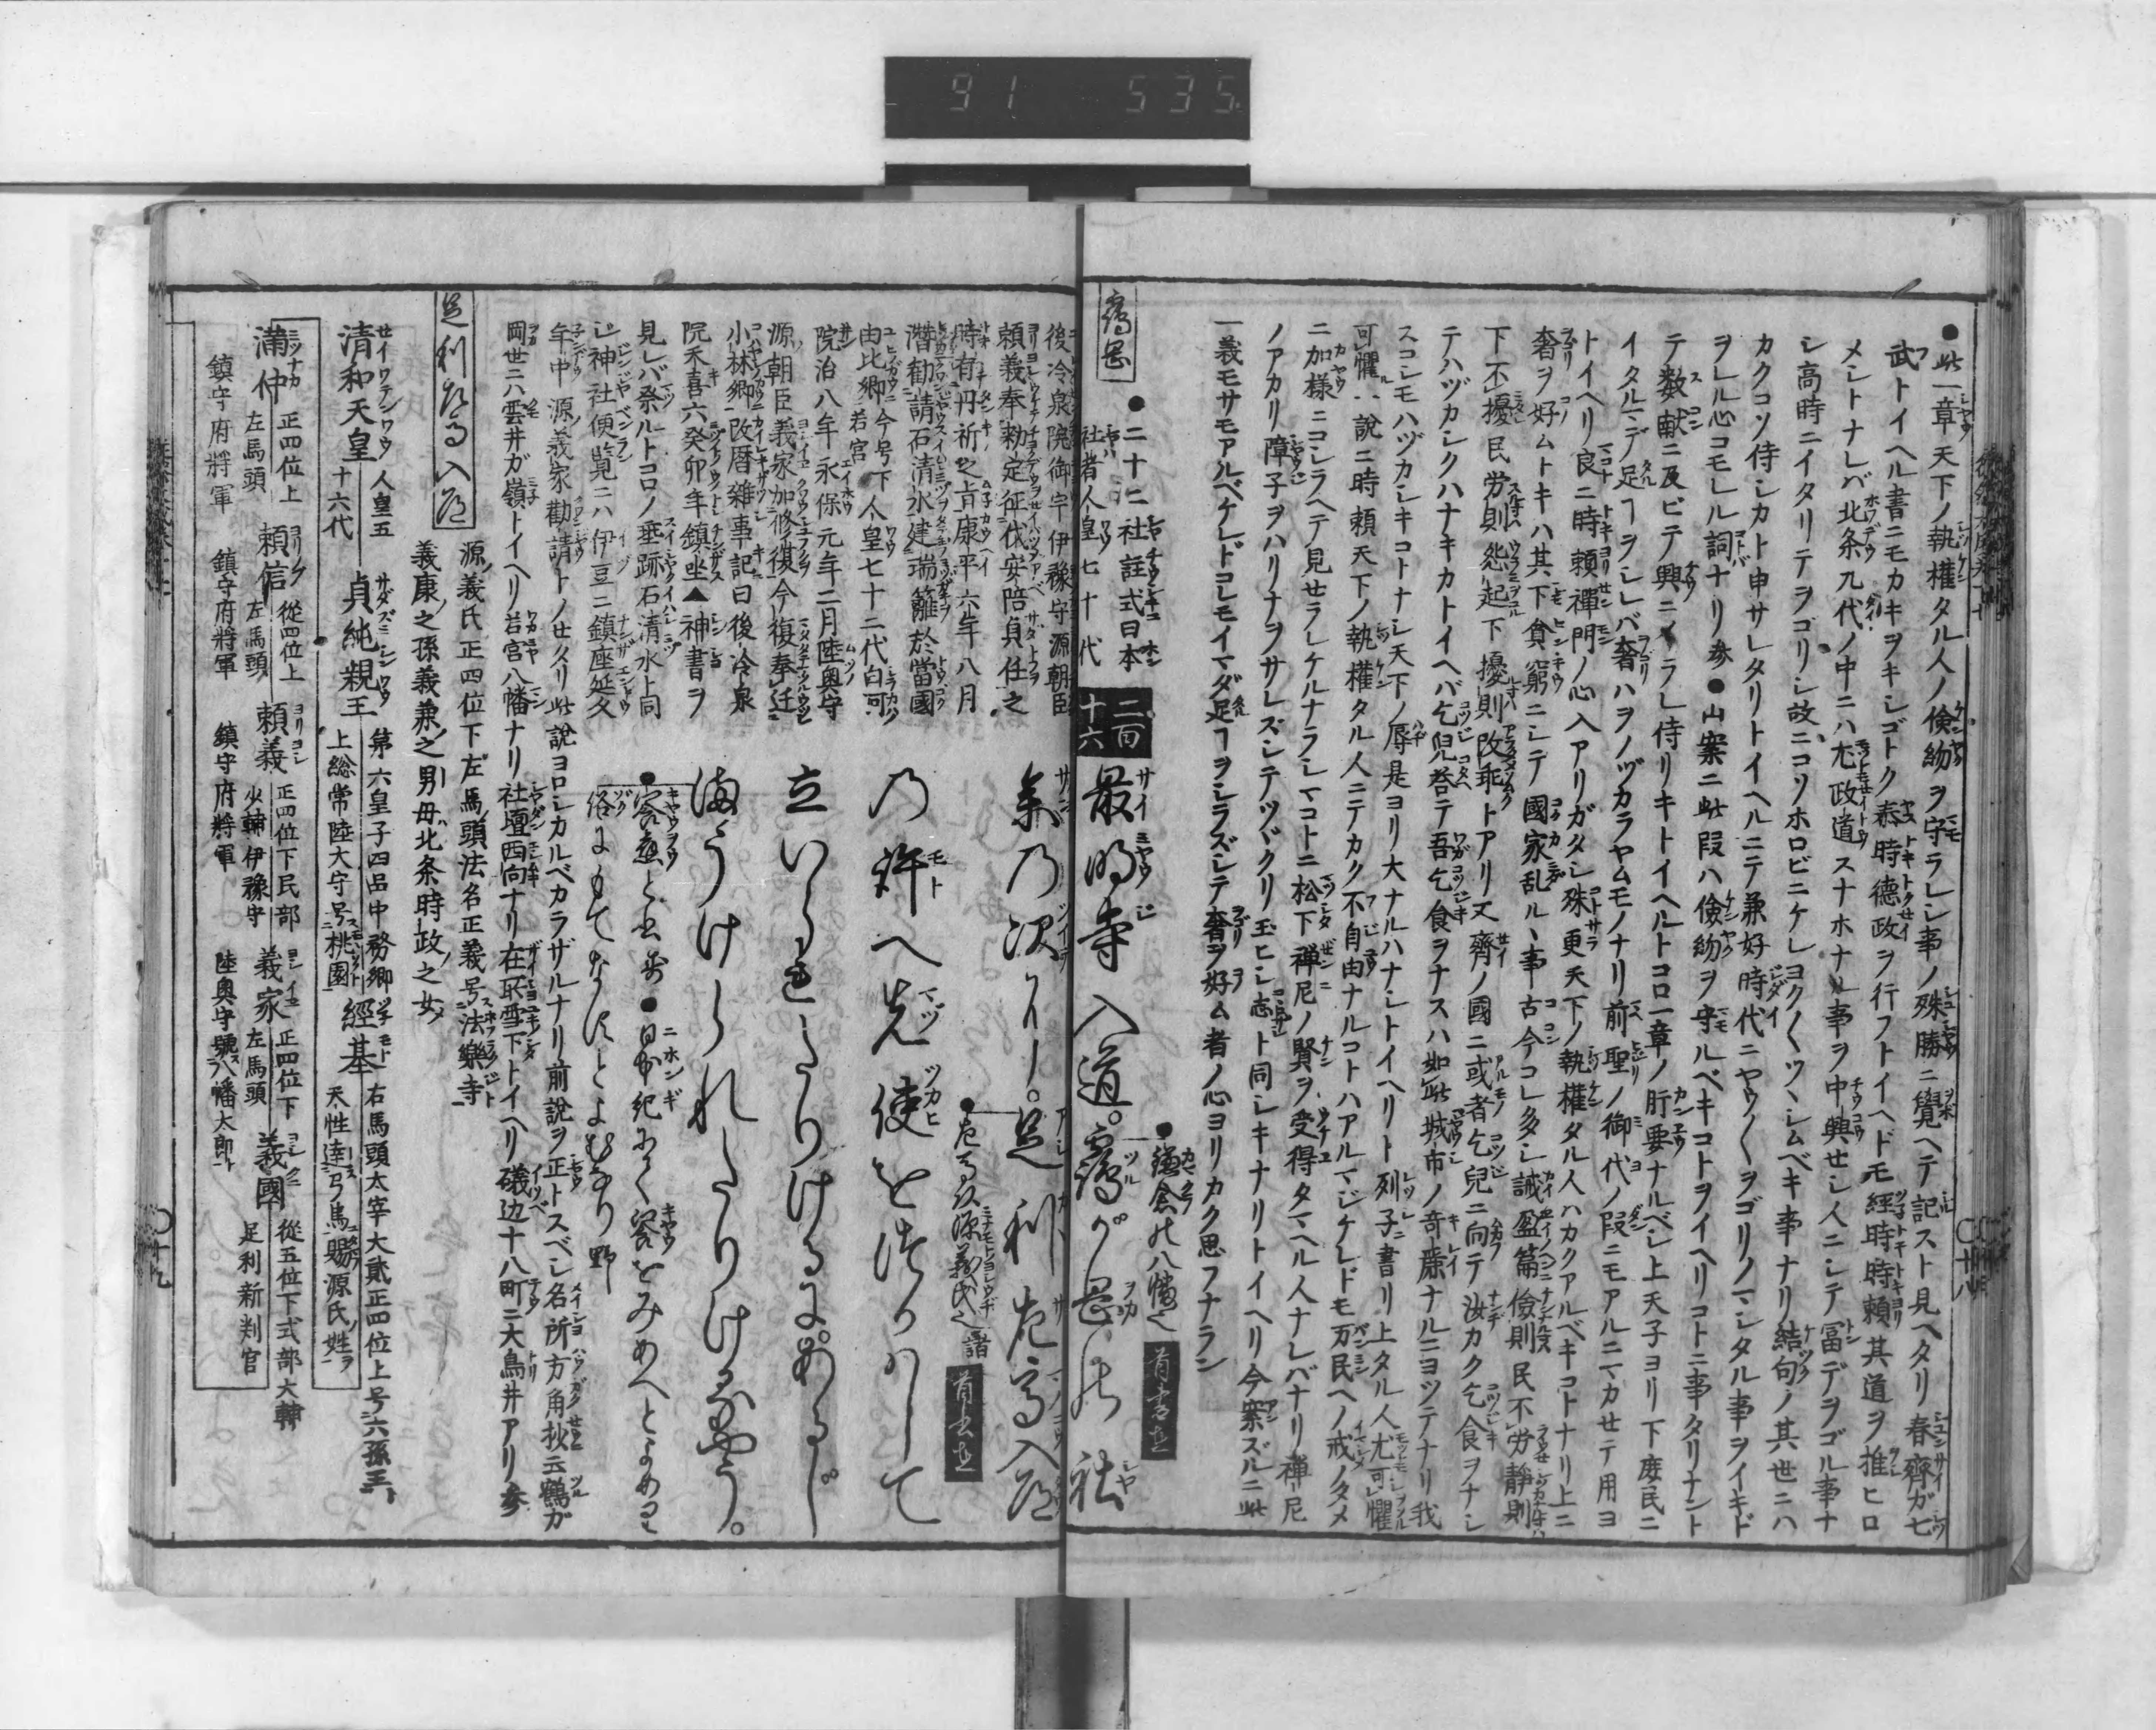 91 535
●此一章天下ノ執権タル人ノ倹約ヲ守ラレシ事ノ殊勝ニ覺ヘテ記スト見ヘタリ春齊ガ七
武トイヘル書ニモカキヲキシゴトク泰時德政ヲ行フトイヘドモ經時時頼其道ヲ推ヒロ
メントナレバ北条九代ノ中ニハ尤政道スナホナル事ヲ中興セシ人ニシテ冨デヲゴル事ナ
シ高時ニイタリテヲゴリシ故ニコソホロビニケレヨク〱ツヽシムベキ事ナリ結句ノ其世ニハ
カクコソ侍シカト申サレタリトイヘルニテ兼好時代ニヤウ〱ヲゴリノマシタル事ヲイキド
ヲレル心コモレル詞ナリ参●山案ニ此段ハ儉約ヲ守ルベキコトヲイヘリコトニ事タリナント
テ数献ニ及ビテ興ニイラレ侍リキトイヘルトコロ一章ノ肝要ナルベシ上天子ヨリ下庶民ニ
イタルマデ足ヿヲシレバ奢ハヲノヅカラヤムモノナリ前聖ノ御代ノ段ニモアルニマカセテ用ヨ
トイヘリ良ニ時頼禪門ノ心入アリガタシ殊更天下ノ執權タル人ハカクアルベキコトナリ上ニ
奢ヲ好ムトキハ其下貧窮ニシテ國家乱ルヽ事古今コレ多シ誡盈篇儉則民不労静則
下不擾民労則怨起下擾則政乖トアリ又齊ノ國ニ或者乞兒ニ向テ汝カク乞食ヲナシ
テハヅカシクハナキカトイヘバ乞兒答テ吾乞食ヲナスハ如此城市ノ奇麗ナルニヨツテナリ我
スコシモハヅカシキコトナシ天下ノ辱是ヨリ大ナルハナシトイヘリト列子ニ書リ上タル人尤可懼
可懼ル一說ニ時頼天下ノ執權タル人ニテカク不自由ナルコトハアルマジケレドモ万民ヘノ戒ノタメ
ニ加様ニコシラヘテ見せラレケルナラシマコトニ松下禅尼ノ賢ヲ受得タマヘル人ナレバナリ禅尼
ノアカリ障子ヲハリナヲサレズシテツヾクリ玉ヒシ志ト同シキナリトイヘリ今案ズルニ此
一義モサモアルベケレドコレモイマダ足ヿヲシラズシテ奢ヲ好ム者ノ心ヨリカク思フナラン
●鎌倉の八幡也 首書在
鶴岡 ●二十二社註式曰本
社者人皇七十代
二百十六 最明寺入道。鶴が岡の社
後冷泉院御宇伊豫守源朝臣
頼義奉勅定征伐安陪貞任之
時有丹祈之肯康平六年八月
潜勧請石清水建瑞籬於當國
由比郷今号下人皇七十二代白可
若宮
院治八年永保元年二月陸奥守
源朝臣義家加修復今復奉迁
小林郷改暦雜事記曰後冷泉
院天喜六癸卯年鎮坐▲神書ヲ
見レバ祭ルトコロノ垂跡石清水上同
シ神社便覧ニハ伊豆ニ鎮座延久
年中源義家勸請トノせタリ此說ヨロシカルベカラザルナリ前說ヲ正トスベシ名所方角抄云鶴ガ
岡世ニハ雲井ガ嶺トイヘリ若宮八幡ナリ社壇西向ナリ在所雪下トイヘリ礒辺十八町ニ大鳥井アリ参
参乃次に。足利左馬入道
●左馬頭源義氏也諸 首書在
乃許へ先使をつかはして
立いられたりけるに。あるじ
まうけられたりけるやう。
●饗應と書 ●日本紀に〱 饗をみあへとよめると
俗にもてなすとよむなり野
足利左馬入道
源義氏正四位下左馬頭法名正義号法樂寺
義康之孫義兼之男母北条時政之女
清和天皇 人皇五
十六代
貞純親王 第六皇子四品中務卿
上総常陸大守号桃園
經基 右馬頭太宰大貳正四位上号六孫王
天性達弓馬賜源氏ノ姓ヲ
満仲 正四位上
左馬頭
鎮守府將軍
頼信 從四位上
左馬頭
鎮守府將軍
頼義 正四位下民部
少輔伊豫守
鎮守府將軍
義家 正四位下
左馬頭
陸奥守號八幡太郎ト
義國 從五位下式部大輔
足利新判官